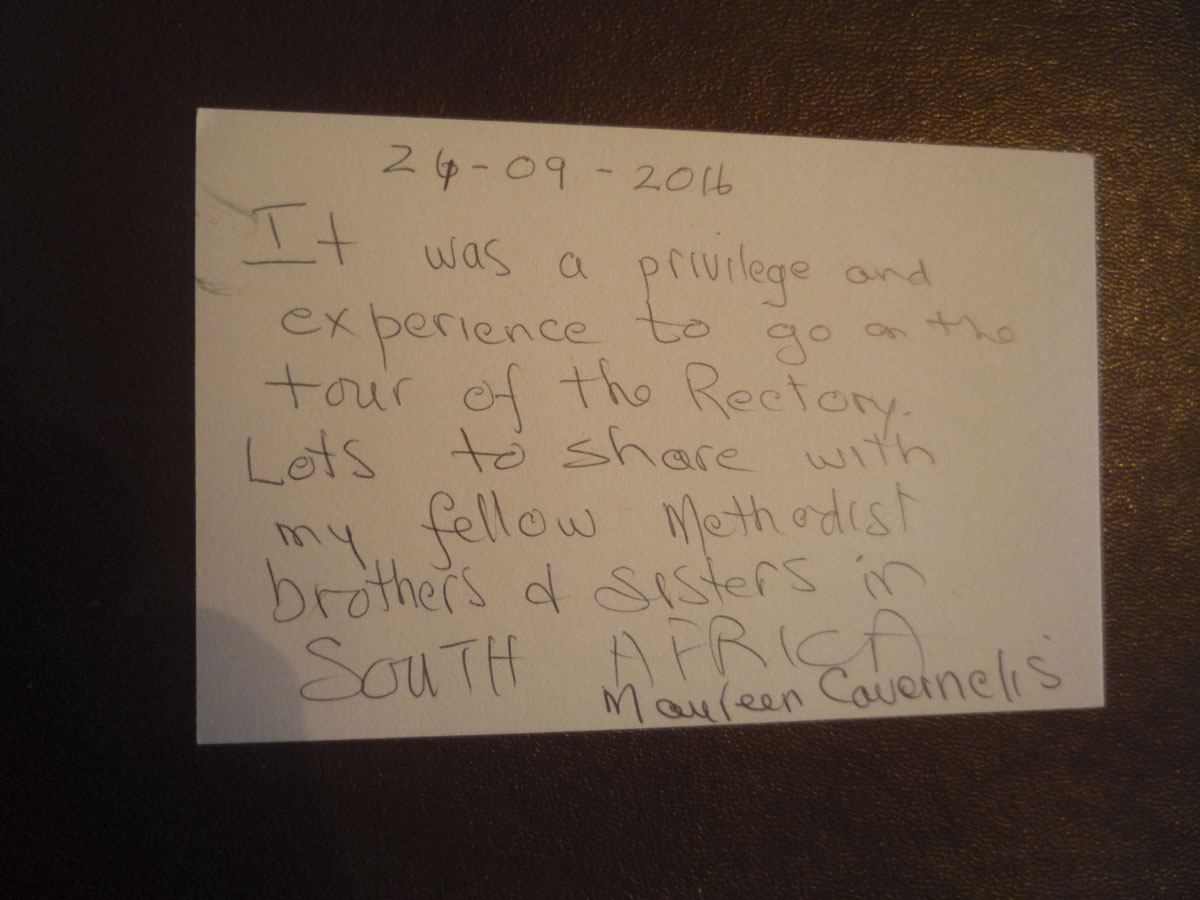 24-09-2016
It was a privilege and
experience to go on the
tour of the Rectory.
Lots to share with
my fellow Methodist
brothers & sisters in
SOUTH AFRICA
Maureen